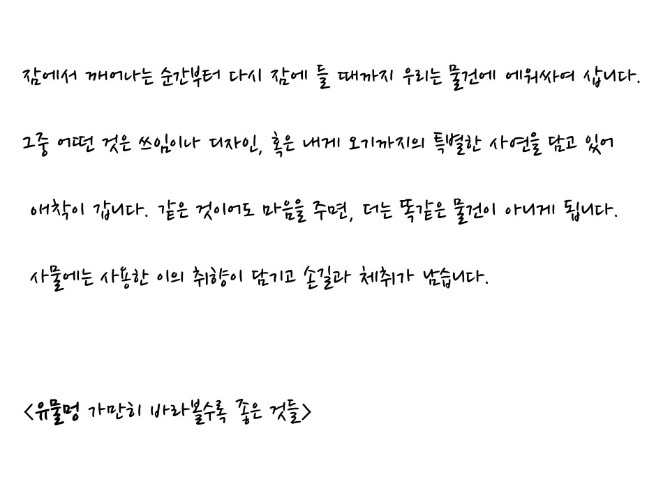 잠에서 깨어나는 순간부터 다시 잠에 들 때까지 우리는 물건에 에워싸여 삽니다.
그중 어떤 것은 쓰임이나 디자인, 혹은 내게 오기까지의 특별한 사연을 담고 있어
애착이 갑니다. 같은 것이어도 마음을 주면, 더는 똑같은 물건이 아니게 됩니다.
사물에는 사용한 이의 취향이 담기고 손길과 체취가 남습니다.
<유물멍 가만히 바라볼수록 좋은 것들>